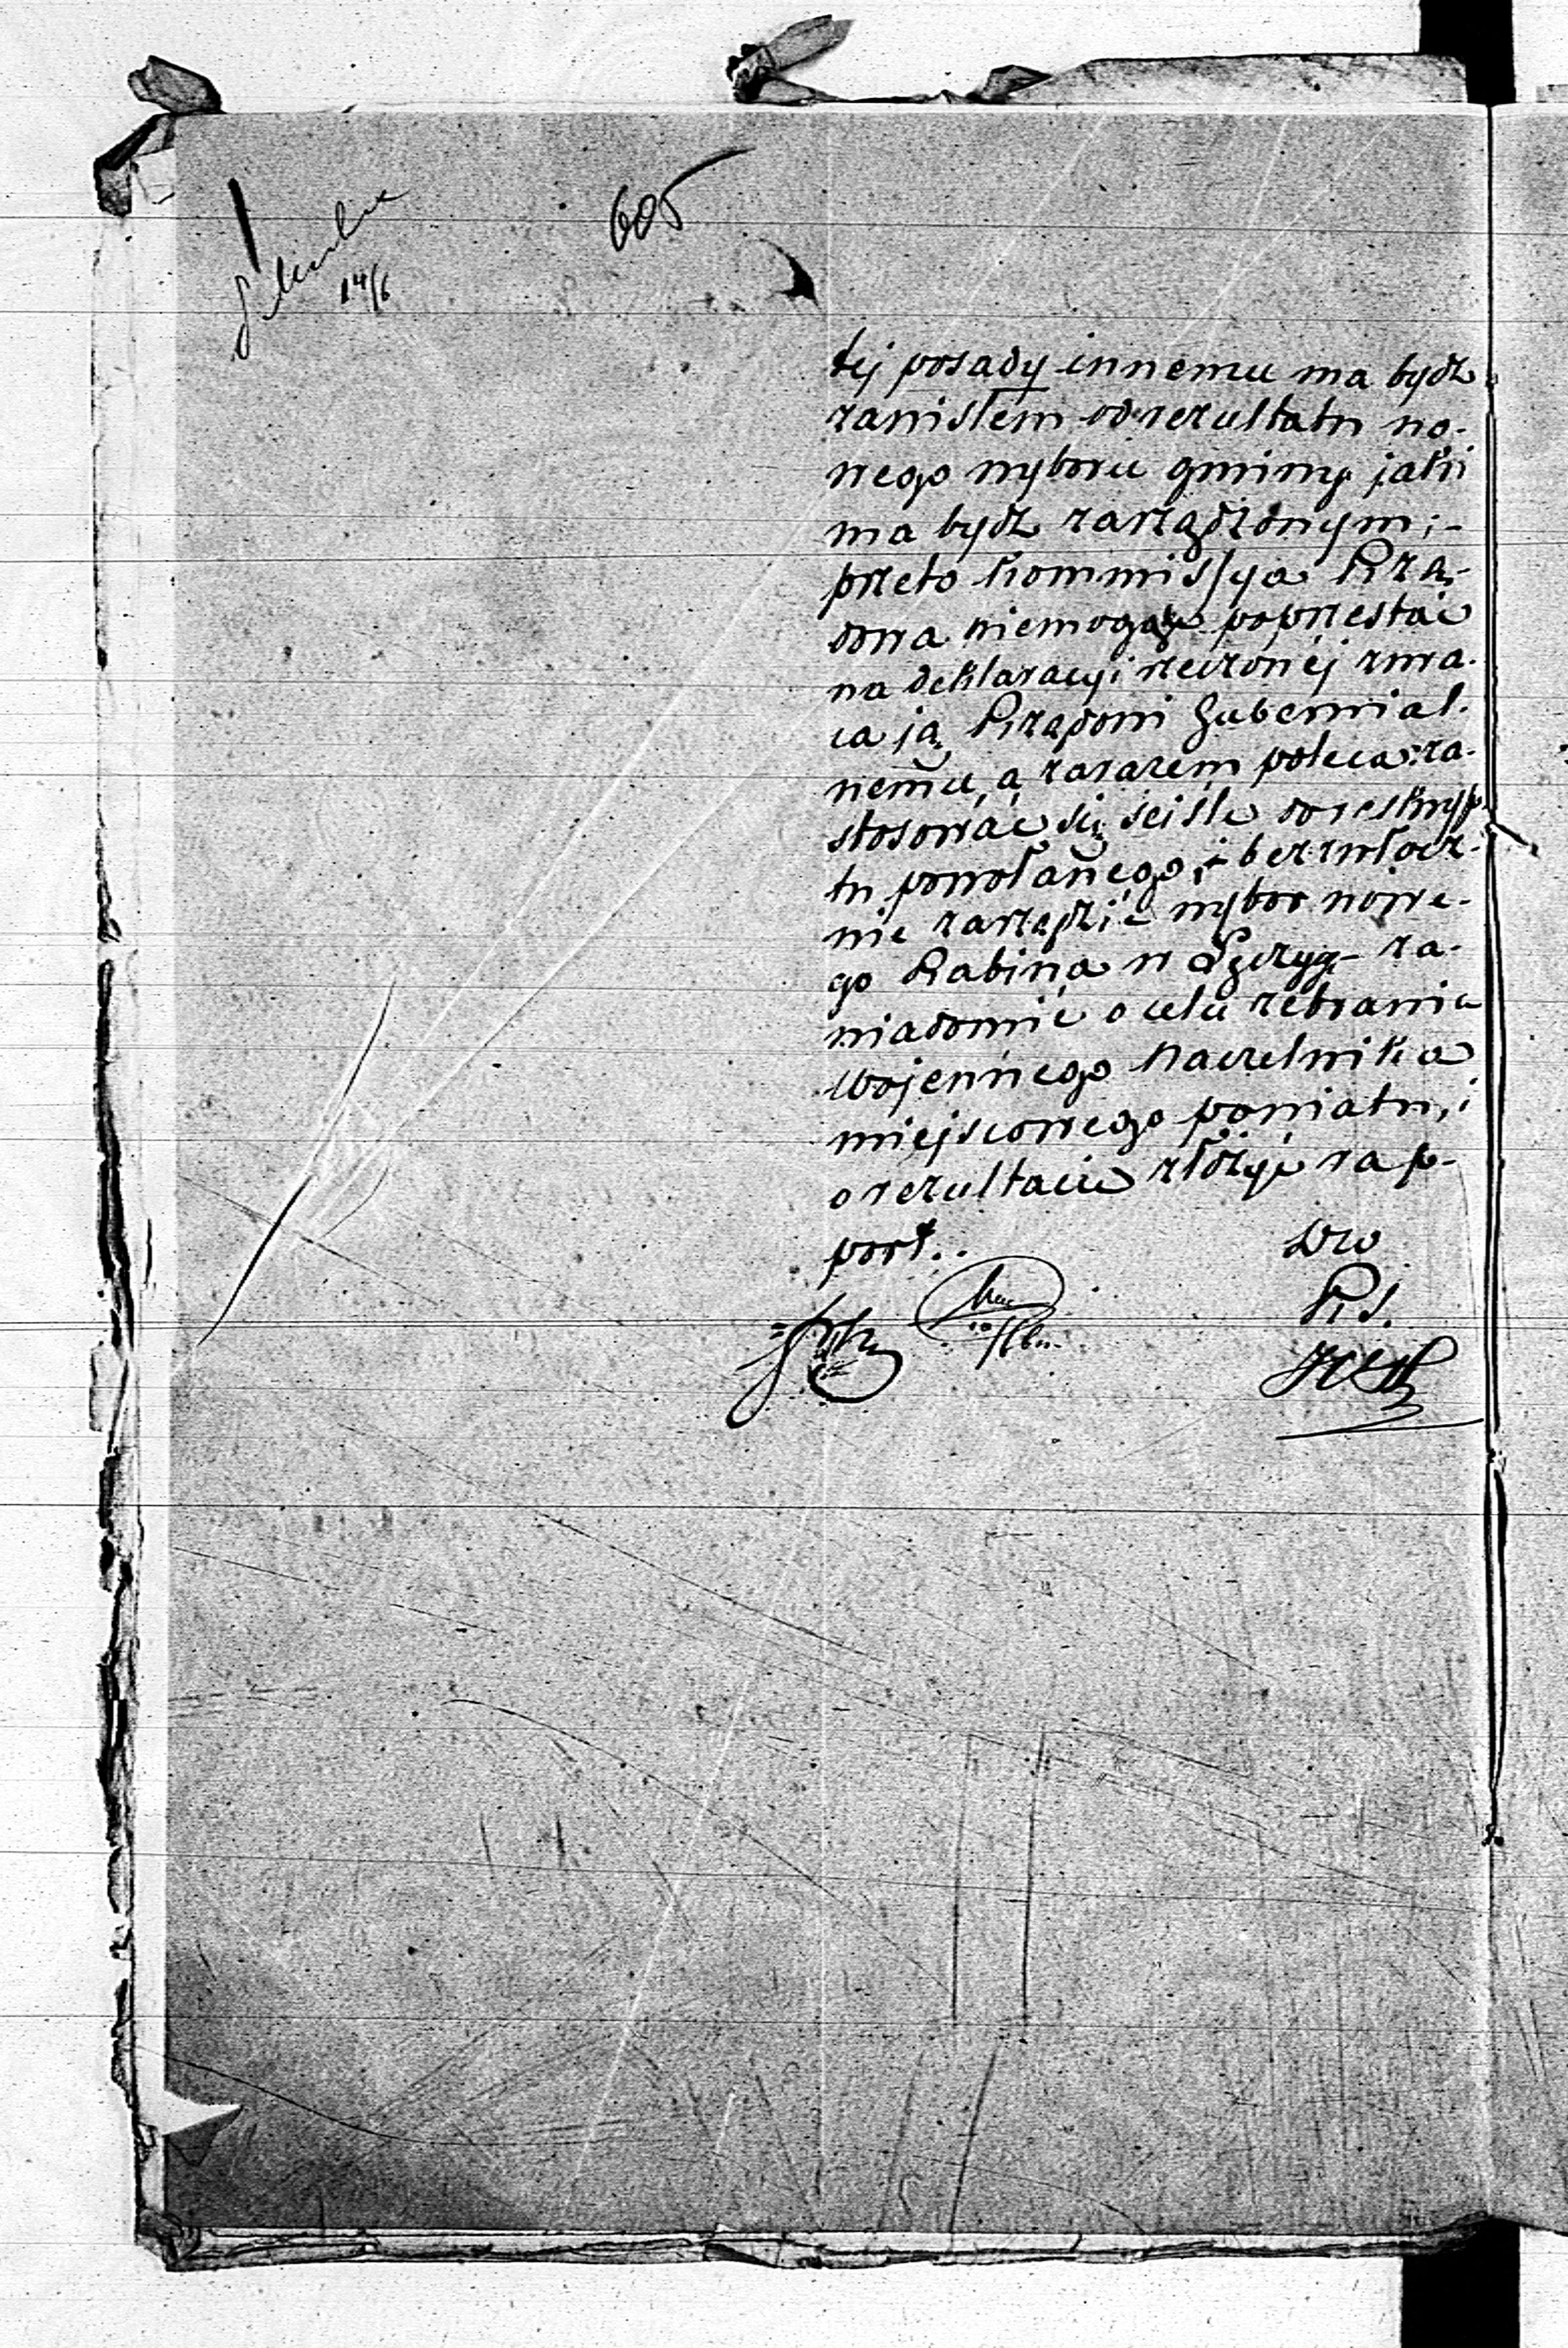 605
14/6
tej posady innemu ma bydź
zawisłem od rezultatu no-
wego wyboru gminy jaki
ma bydź zarządzonym;-
przeto Kommissya Rzą-
dowa niemogąc poprzestać
na deklaracyi rzeczonej zwra-
ca ją Rządowi Gubernial-
nemu, a zarazem poleca za-
stosować się ściśle do reskryp-
tu powołanego, i bezzwłocz-
nie zarządzić wybor nowe-
go Rabina w Szczyg- za-
wiadomić o celu zebrania
Wojennego Naczelnika
miejscowego powiatu, i
o rezultacie złożyć rap-
port..